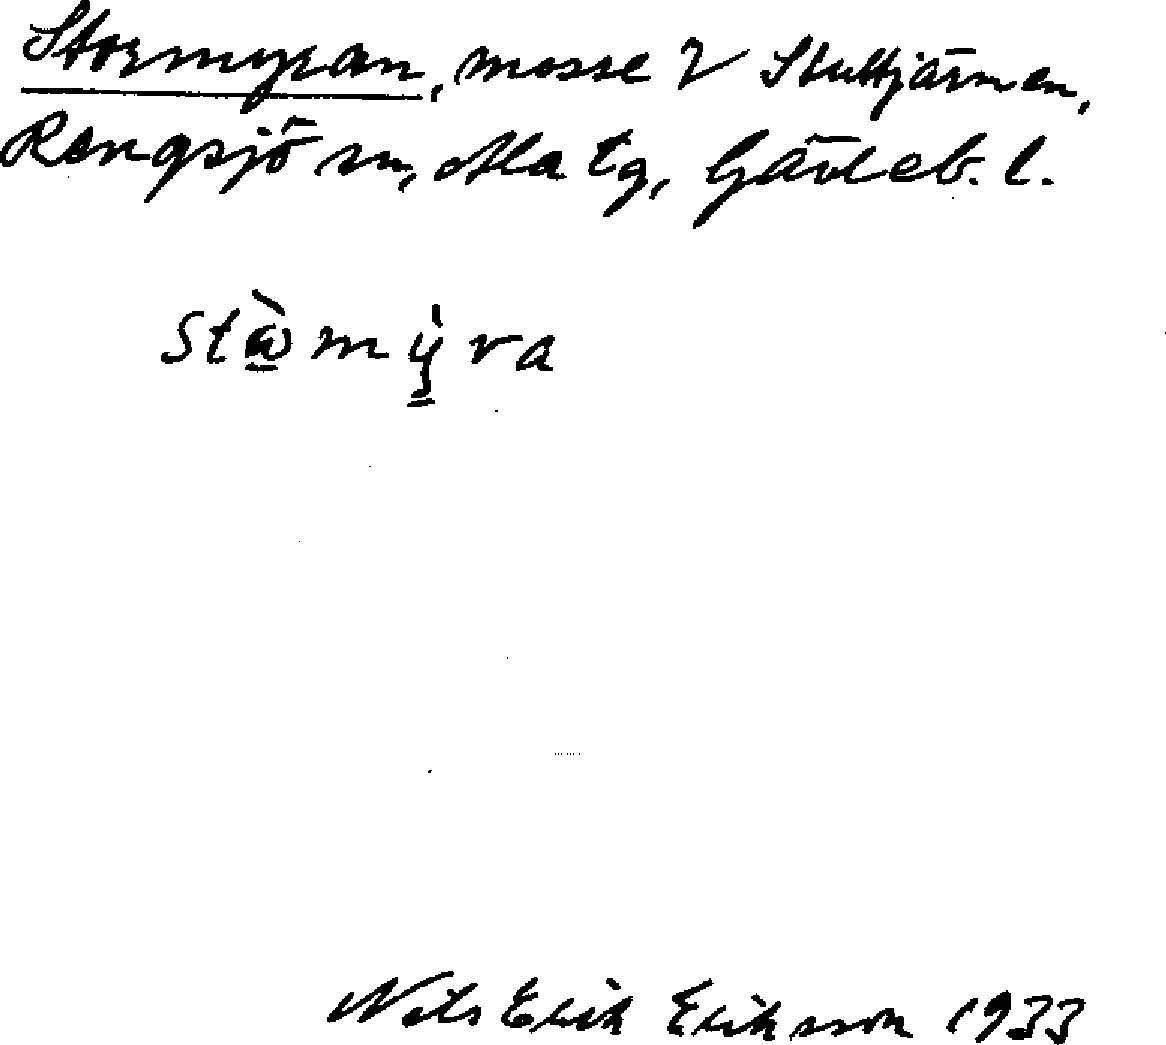 Stormyran, mosse V Stuttjärnen,
Rengsjö sn, Ala tg, Gävleb. l.
Nils Erik Eriksson 1933